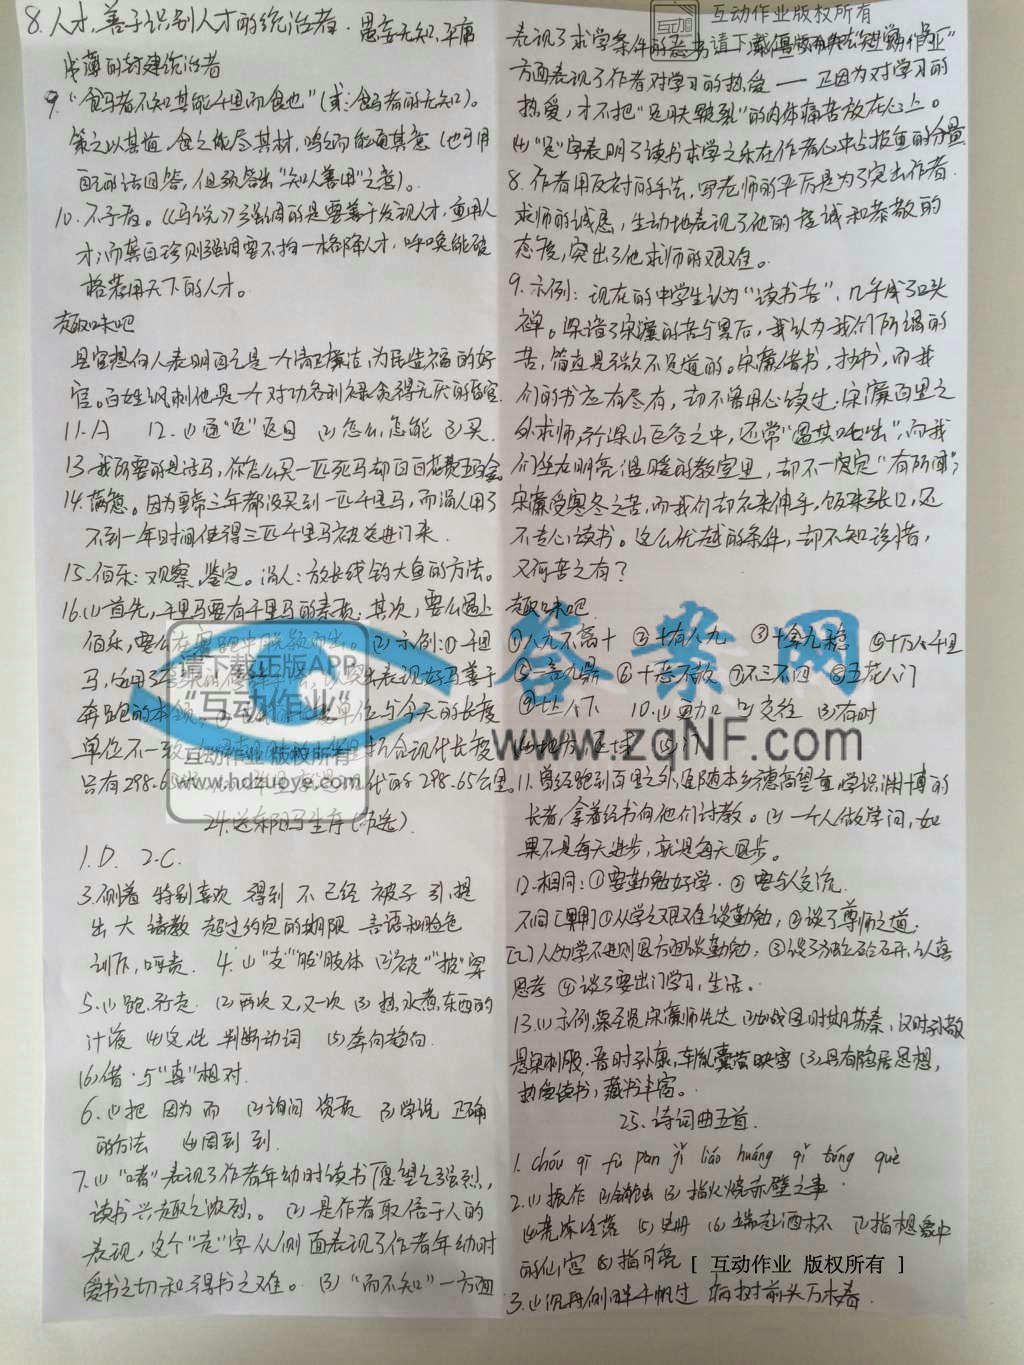 8. 人才, 善于识别人才的统治者. 愚妄无知、平庸
浅薄的封建统治者
9. "食马者不知其能千里而食也"(或:食马者的无知)。
策之以其道, 食之能尽其材, 鸣之而能通其意(也可用
自己的话回答, 但须答出"知人善用"之意)。
10. 不矛盾。《马说》强调的是要善于发现人才, 重用人
才; 而龚自珍则强调要不拘一格降人才, 呼唤能破
格荐用天下的人才。
趣味吧
县官想向人表明自己是一个清正廉洁, 为民造福的好
官。百姓讽刺他是一个对功名利禄贪得无厌的昏官.
11. A 12. (1)通"返"返回 (2)怎么, 怎能 (3)买.
13. 我所要的是活马, 你怎么买一匹死马却白白花费五百金.
14. 满意。因为皇帝三年都没买到一匹千里马, 而涓人用了
不到一年时间使得三匹千里马被送进门来.
15. 伯乐: 观察、鉴定. 涓人: 放长线钓大鱼的方法。
16. (1)首先, 千里马要有千里马的素质; 其次, 要么遇上
伯乐, 要么在 (2)示例: ①千里
马, 表现好马善于
奔跑的本领 单位与今天的长度
单位不一致 折合现代长度
只有298.6 代的298.65公里。
24. 送东阳马生序(节选)
1. D. 2. C.
3. 倒着 特别喜欢 得到 不 已经 被子 引, 提
出 大 请教 超过约定的期限 言语和脸色
训斥, 呵责. 4. (1)"支""肢"肢体 (2)"被""披"穿
5. (1)跑. 行走. (2)两次 又, 又一次 (3)热水 煮东西的
汁液 (4)定, 比 判断动词 (5)奔向 趋向.
(6)借. 与"真"相对.
6. (1)把 因为 而 (2)询问 资质 (3)学说 正确
的方法 (4)周到 到.
7. (1)"嗜"表现了作者年幼时读书愿望之强烈,
读书兴趣之浓烈。 (2)是作者取信于人的
表现, 这个"走"字从侧面表现了作者年幼时
爱书之切和得书之难。 (3)"而不知"一方面
互动作业版权所有
表现了求学条件的艰苦
方面表现了作者对学习的热爱——正因为对学习的
热爱, 才不把"足肤皲裂"的肉体痛苦放在心上。
(4)"足"字表明了读书求学之乐在作者心中占据重的分量
8. 作者用反衬的手法, 写老师的严厉是为了突出作者.
求师的诚恳, 生动地表现了他的虔诚和恭敬的
态度, 突出了他求师的艰难。
9. 示例: 现在的中学生认为"读书苦", 几乎成了口头
禅。品读了宋濂的苦与累后, 我认为我们所谓的
苦, 简直是微不足道的。宋濂借书, 抄书, 而我
们的书应有尽有, 却不曾用心读过; 宋濂百里之
外求师, 行深山巨谷之中, 还常"遇其叱咄", 而我
们坐在明亮、温暖的教室里, 却不一定"有所闻";
宋濂受寒冬之苦, 而我们却衣来伸手, 饭来张口, 还
不专心读书。这么优越的条件, 却不知珍惜,
又何苦之有?
趣味吧
①八九不离十 ②十有八九 ③十拿九稳 ④十万八千里
⑤一言九鼎 ⑥十恶不赦 ⑦不三不四 ⑧五花八门
⑨七上八下 10. (1)更加 (2)交往 (3)有时
11. 曾经跑到百里之外, 追随本乡德高望重, 学识渊博的
长者, 拿着经书向他们讨教。(2)一个人做学问, 如
果不是每天进步, 就是每天退步。
12. 相同: ①要勤勉好学. ②要与人交流.
不同[甲] ①从学之艰难谈勤勉, ②谈了尊师之道;
[乙]人的学不进则退方面谈勤勉; ③谈了 认真
思考 ④谈了要出门学习、生活。
13. (1)示例: 宋濂师先达 (2)如战国时期苏秦, 汉时孙敬
悬梁刺股, 晋时孙康, 车胤囊萤映雪 (3)具有隐居思想,
热爱读书, 藏书丰富。
25. 诗词曲五首.
1. chóu qī fù pàn jǐ liáo huáng qǐ tóng què
2. (1)振作 (2)销蚀 (3)指火烧赤壁之事.
(5)史册 (6)端起酒杯 (7)指想象中
的仙宫 (8)指月亮
3. (1)沉舟侧畔千帆过 病树前头万木春.
答案网
www.zqNF.com
请下载正版APP
"互动作业"
互动作业 版权所有
www.hdzuoye.com
[ 互动作业 版权所有 ]